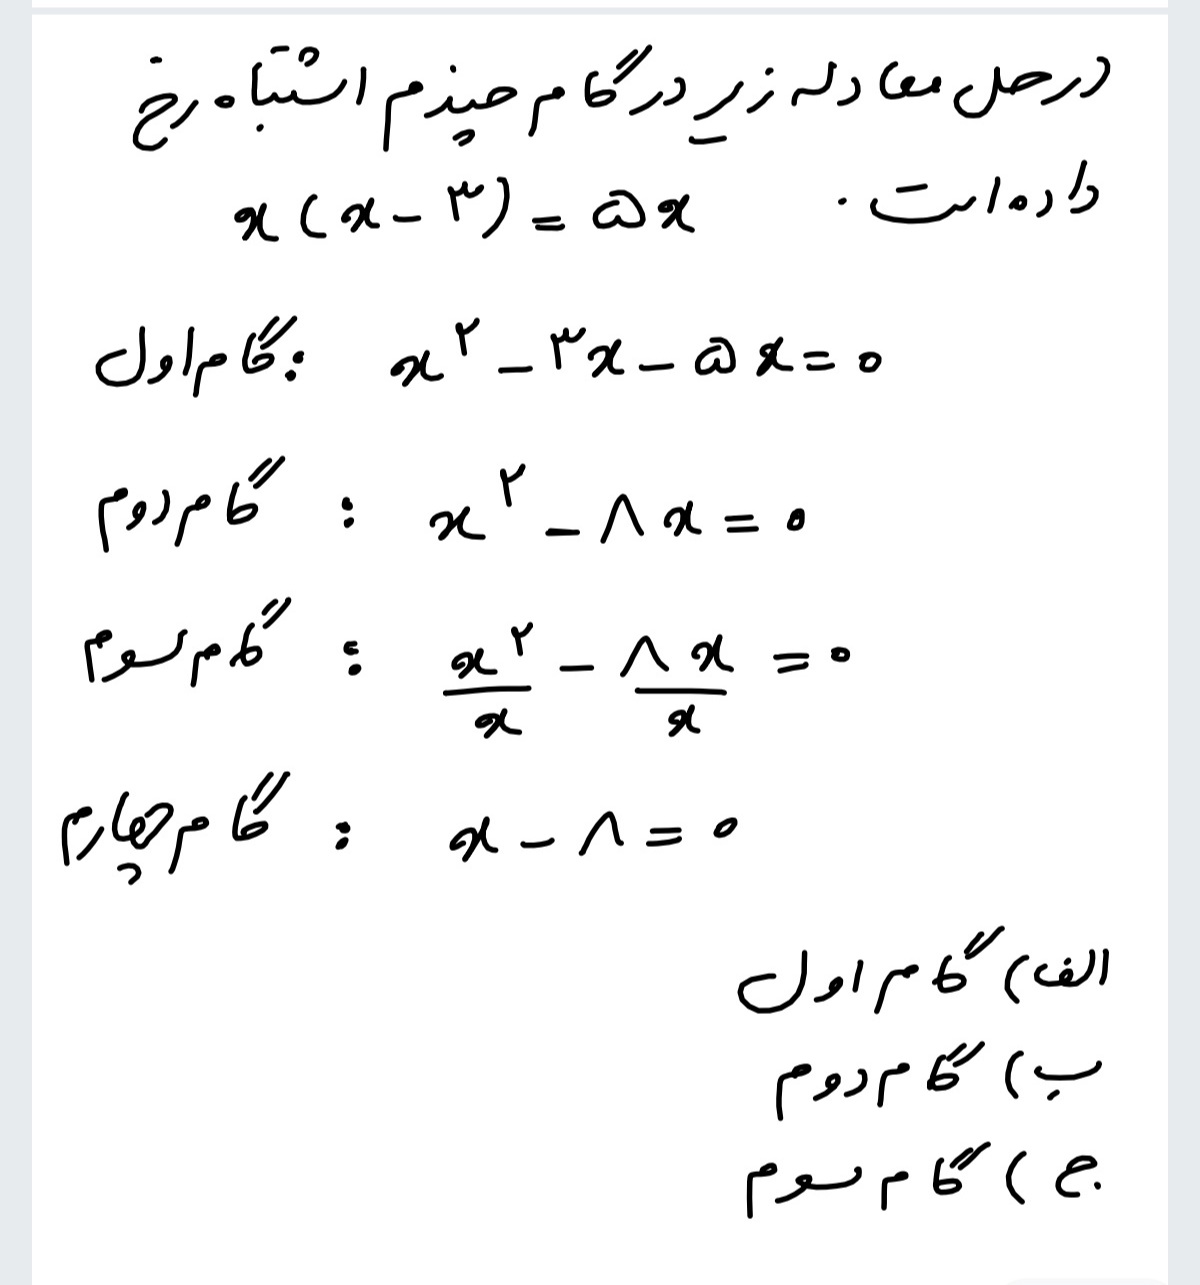 در حل معادله زیر در گام چندم اشتباه رخ
داده است. x(x-۳)=۵x
گام اول: x^۲-۳x-۵x=۰
گام دوم: x^۲-۸x=۰
گام سوم: x^۲/x - ۸x/x = ۰
گام چهارم: x-۸=۰
الف) گام اول
ب) گام دوم
ج) گام سوم